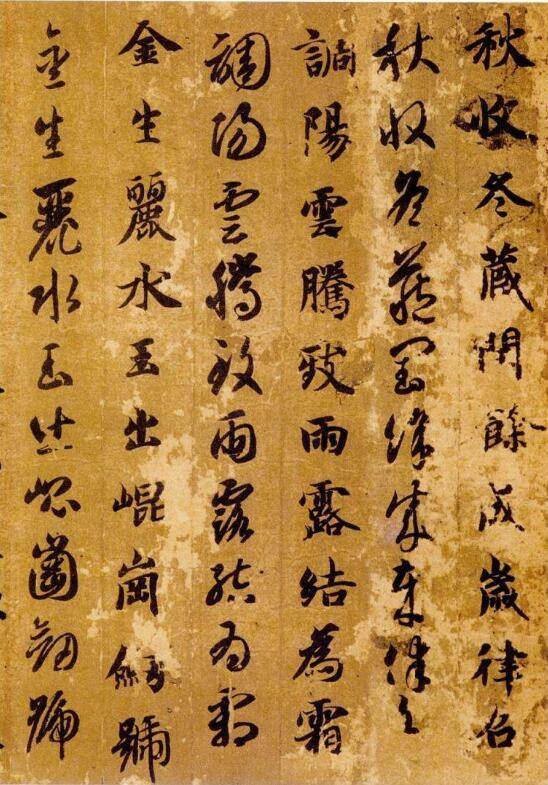 秋收冬藏閏餘成歲律召
秋收冬藏閏餘成歲律召
調陽雲騰致雨露結為霜
調陽雲騰致雨露結為霜
金生麗水玉出崐崗劍號
金生麗水玉出崑崗劍號